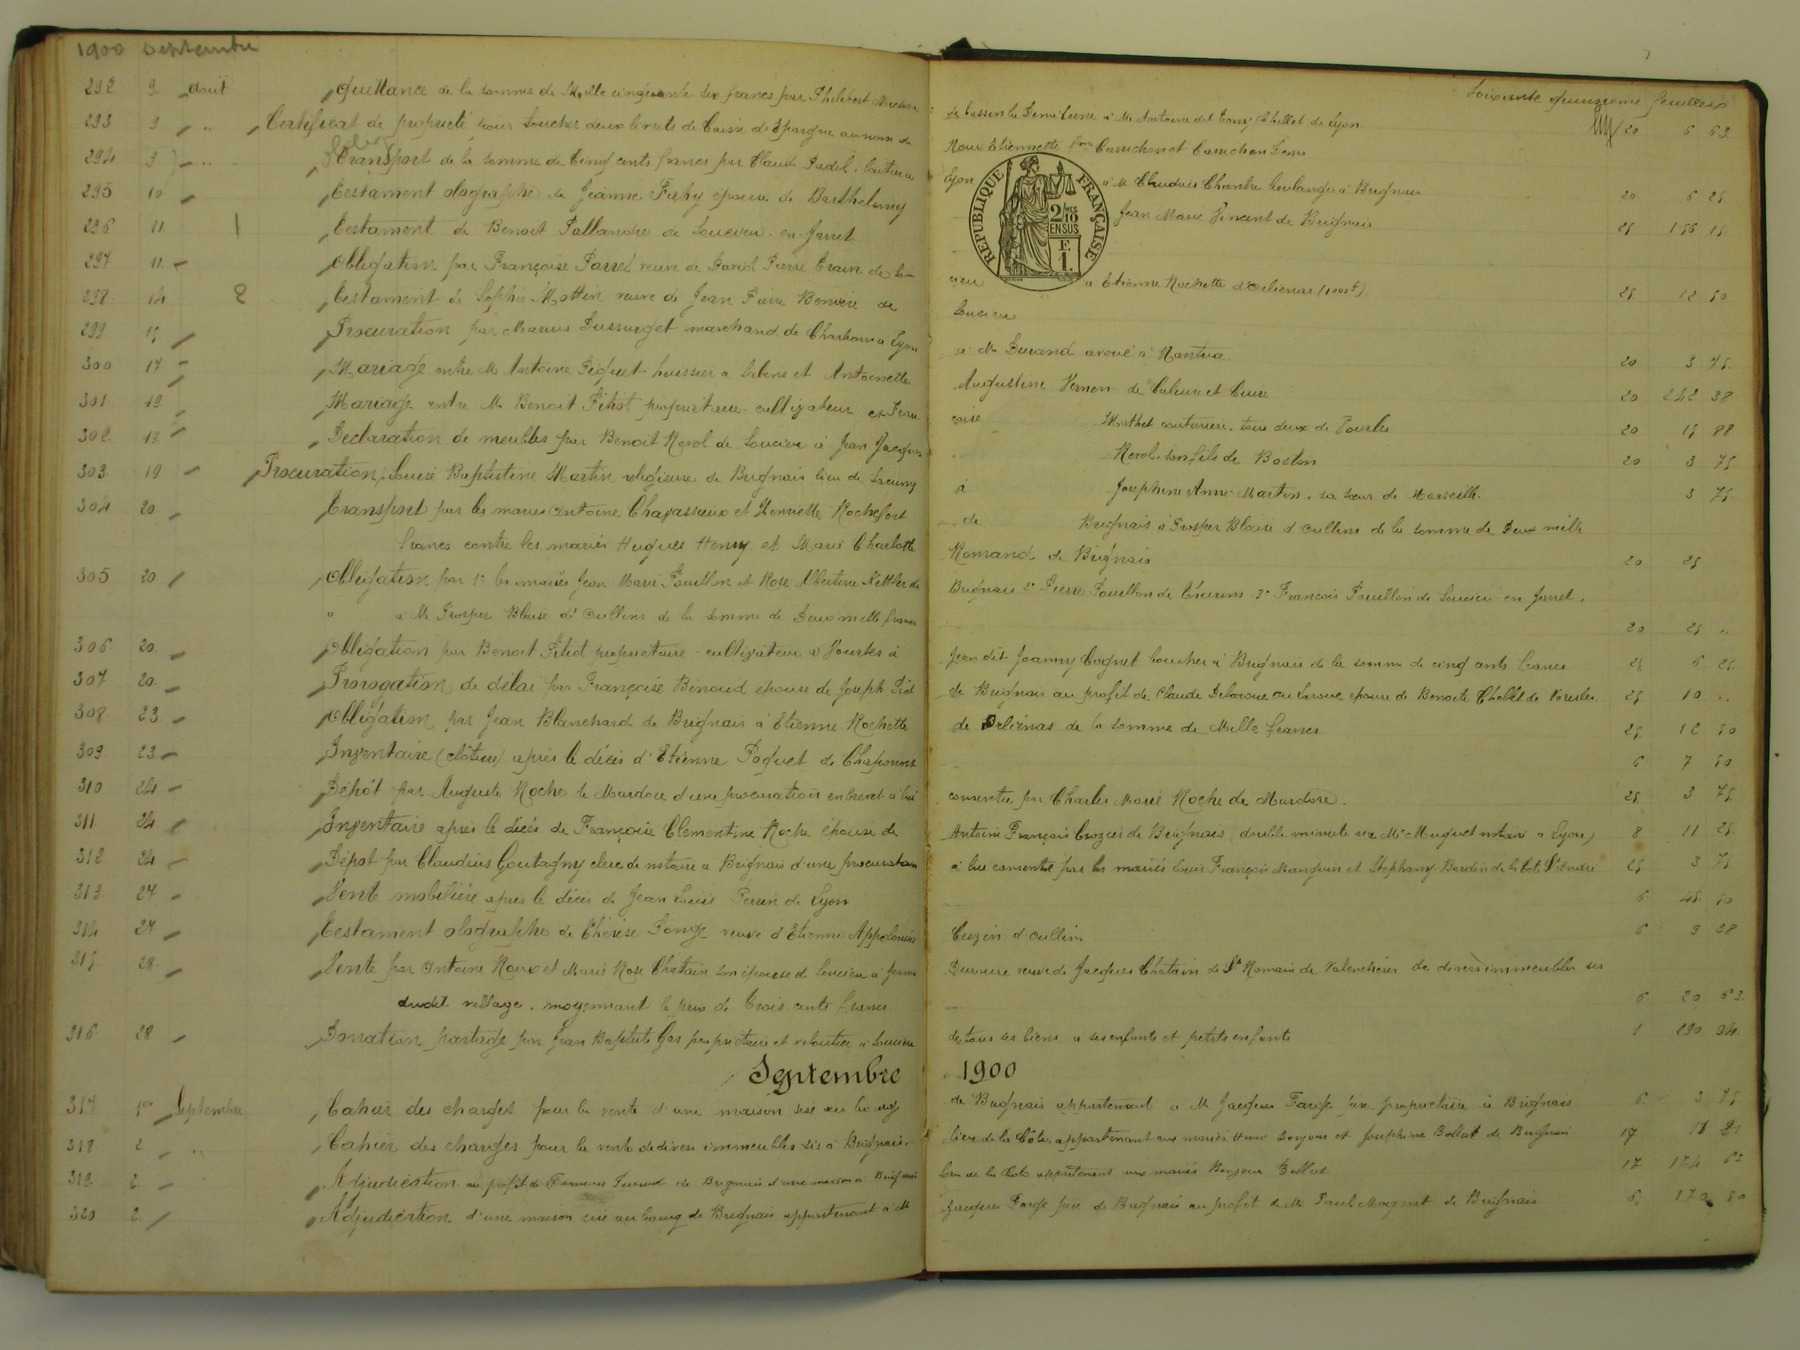 1900 Septembre
Soixante quinzième feuillet
292 9 août Quittance de la somme de Mille cinquante six francs par Philibert
de Lyon 20 6 63
293 9 " Certificat de propriété pour toucher deux livrets de Caisse d'Epargne au nom de
Roux Etiennette Carrichon et Carrichon
294 9 " Transport de la somme de Cinq cents francs par Claude
Lyon à M. Claudius Chantre boulanger à Brignais 20 6 25
295 10 Testament olographe de Jeanne Fahy épouse de Barthélemy
Jean Marie Vincent de Brignais 25 156 15
296 11 1 Testament de Benoit Pallandre de Soucieu-en-Jarret
297 11 Obligation par Françoise veuve de de Sou-
cieu à Etienne Rochette d'Orliénas (1000 f) 25 12 50
298 14 2 Testament de Sophie Mottin veuve de Jean Pierre de
Soucieu
299 15 Procuration par Marius Dussurget marchand de Charbons à Lyon
à Me Durand avoué à Nantua 20 3 75
300 17 Mariage entre M. Antoine Piquet huissier à et Antoinette
Augustine Vernon de Caluire et Cuire 20 242 38
301 19 Mariage entre M. Benoit Pitiot propriétaire cultivateur et Fran-
çoise couturière, tous deux de Vourles 20 15 88
302 19 Déclaration de meubles par Benoit Nerol de Soucieu à Jean Jacques
Nerol son fils de Boston 20 3 75
303 19 Procuration, Louise Baptistine Martin religieuse de Brignais lieu de Sacuny
à Josephine Anne Martin, sa sœur de Marseille. 3 75
304 20 Transport par les mariés Antoine Chavassieux et Henriette Rochefort
de Brignais à Prosper Blaise d'Oullins de la somme de Deux mille
francs contre les mariés Hugues Henry et Marie Charlotte
Romand de Brignais 20 25
305 20 Obligation par 1° les mariés Jean Marie Pavillon et Rose Albertine Kettler de
Brignais 2° Pierre Pavillon de Thurins 3° François Pavillon de Soucieu-en-Jarret,
à M. Prosper Blaise d'Oullins de la somme de Deux mille francs
20 25 "
306 20 Obligation par Benoit Pitiot propriétaire-cultivateur à Vourles à
Jean dit Joanny Cognet boucher à Brignais de la somme de cinq cents francs 25 6 25
307 20 Prorogation de délai par Françoise épouse de Joseph
de Brignais au profit de Claude ou Laroue épouse de Benoite de Vourles 25 10 "
308 23 Obligation par Jean Blanchard de Brignais à Etienne Rochette
de Orliénas de la somme de Mille francs 25 12 50
309 23 Inventaire (clôture) après le décès d'Etienne Poquet de Chaponost
6 7 50
310 24 Dépôt par Auguste Roche de Mardore d'une procuration en brevet à lui
consentie par Charles Marie Roche de Mardore. 25 3 75
311 24 Inventaire après le décès de Françoise Clémentine Roche épouse de
Antoine François Crozier de Brignais (double minute avec Me Muguet notaire à Lyon) 8 11 25
312 24 Dépôt par Claudius Goutagny clerc de notaire à Brignais d'une procuration
à lui consentie par les mariés Louis François et Stéphany Bardin de la Côte St André 25 3 75
313 27 Vente mobilière après le décès de Jean Louis Perrin de Lyon
6 45 10
314 27 Testament olographe de Thérèse veuve d'Etienne Appolonie
Cuzin d'Oullins 6 9 38
315 28 Vente par Antoine Roux et Marie Rose Chatain son épouse de Soucieu à
veuve de Jacques Chatain de St Romain de de divers immeubles sis
dudit village, moyennant le prix de Trois cents francs
6 20 63
316 28 Donation partage par Jean Baptiste Gas propriétaire et veloutier à Soucieu
de tous ses biens à ses enfants et petits enfants 1 290 94
Septembre 1900
317 1er Septembre Cahier des charges pour la vente d'une maison sise au bourg
de Brignais appartenant à M. Jacques Farge père propriétaire à Brignais 6 3 75
318 2 " Cahier des charges pour la vente de divers immeubles sis à Brignais,
lieu de la Côte, appartenant aux mariés Bonjour et Joséphine Bollut de Brignais 17 11 25
319 2 Adjudication au profit de de Brignais d'une maison à Brignais
lieu de la Côte appartenant aux mariés Bonjour Bollut 17 174 63
320 2 Adjudication d'une maison sise au bourg de Brignais appartenant à M.
Jacques Farge père de Brignais au profit de M. Paul Magnat de Brignais 6 170 50
RÉPUBLIQUE FRANÇAISE
2/10 MES
EN SUS
F. 1.